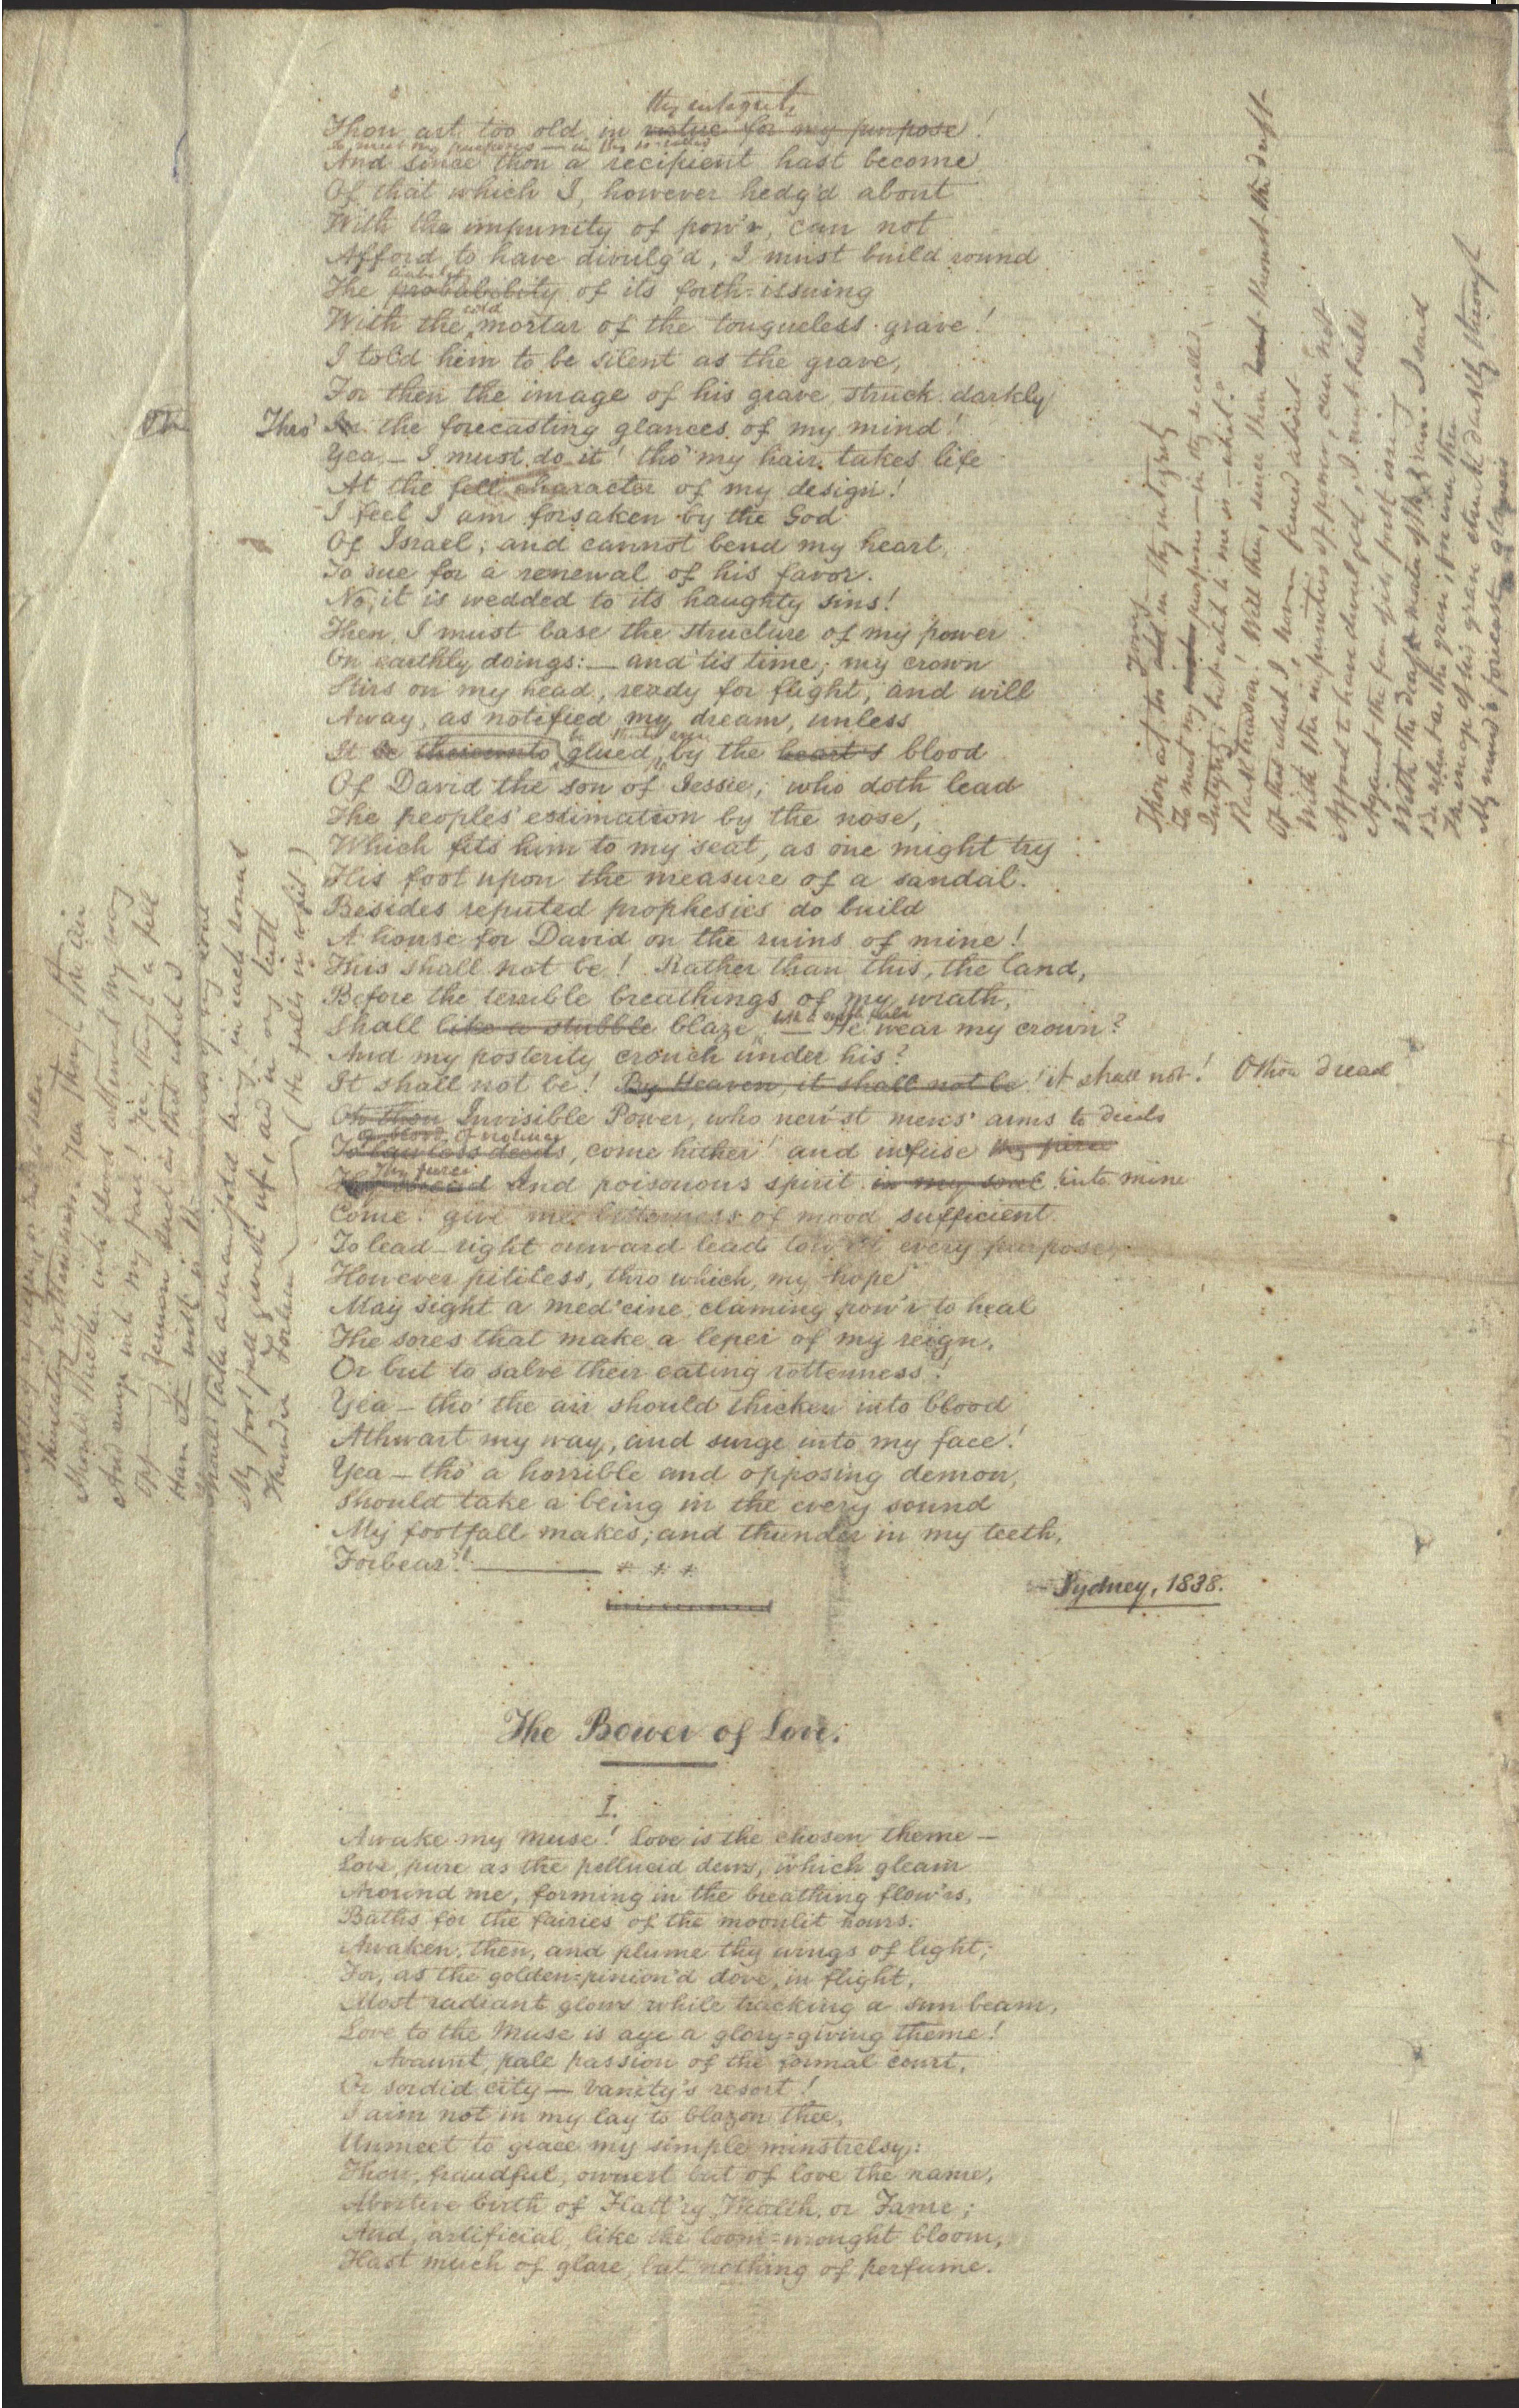 thy integrity
Thou art too old in virtue for my purpose!
to meet my purpose — in thy so-called
And since thou a recipient hast become
Of that which I, however hedg'd about
With the impunity of pow'r, can not
Afford to have divulg'd, I must build round
The probability of its forth-issuing
cold
With the mortar of the tongueless grave!
I told him to be silent as the grave,
For then the image of his grave struck darkly
Thro' In the forecasting glances of my mind!
Yea,— I must do it! tho' my hair takes life
At the fell character of my design!
I feel I am forsaken by the God
Of Israel; and cannot bend my heart,
To sue for a renewal of his favor.
No, it is wedded to its haughty sins!
Then, I must base the structure of my power
On earthly doings:— and 'tis time; my crown
Stirs on my head, ready for flight, and will
Away, as notified my dream, unless
It be thereunto glued, by the heart's blood
Of David the son of Jessie; who doth lead
The peoples' estimation by the nose,
Which fits him to my seat, as one might try
His foot upon the measure of a sandal.
Besides reputed prophesies do build
A house for David on the ruins of mine!
This shall not be! Rather than this, the land,
Before the terrible breathings of my wrath,
Shall like a stubble blaze. — He wear my crown?
And my posterity crouch under his?
It shall not be! By Heaven, it shall not be! it shall not! O thou dread
Oh thou Invisible Power, who nerv'st mens' arms to deeds
of blood, of violence
To lawless deeds, come hither! and infuse thy fierce
Thy fierce
Thy dread And poisonous spirit in my soul into mine
Come! give me bitterness of mood sufficient
To lead—right onward lead to every purpose,
However pitiless, thro which, my hope
May sight a med'cine, claming pow'r to heal
The sores that make a leper of my reign,
Or but to salve their eating rottenness!
Yea — tho' the air should thicken into blood
Athwart my way, and surge into my face!
Yea — tho' a horrible and opposing demon,
Should take a being in the every sound
My footfall makes; and thunder in my teeth,
Forbear!! ——— * * *
Sydney, 1838.
Thou art too old in thy integrity
To meet my purpose — in thy so called
Integrity, but which to me is — what?
Rash treason! Well then, since thou
Of that which I, however fenced about
With the impunities of power, can not
Afford to have divulged, I must build
Against the fear of its forth issuing
With the
Be silent as the grave! for even then
The image of his grave struck duskly through
My mind's forecast glances
Should thicken into blood athwart my way
And surge into my face! Yea, though a fell
Opposing demon
Shall take a manifold being in each sound
My foot fall gives
Thunder Forbear (He falls in a fit)
The Bower of Love.
I.
Awake my Muse! Love is the chosen theme —
Love, pure as the pellucid dews, which gleam
Around me, forming in the breathing flow'rs,
Baths for the fairies of the moonlit hours.
Awaken, then, and plume thy wings of light;
For, as the golden-pinion'd dove, in flight,
Most radiant glows while tracking a sun beam,
Love to the Muse is aye a glory-giving theme!
Avaunt, pale passion of the formal court,
Or sordid city — Vanity's resort!
I aim not in my lay to blazon thee,
Unmeet to grace my simple minstrelsy:
Thou, fraudful, ownest but of love the name,
Abortive birth of Flatt'ry, Wealth, or Fame;
And, artificial, like the loom-wrought bloom,
Hast much of glare, but nothing of perfume.